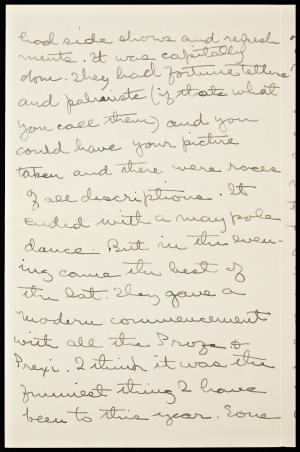 had side shows and refresh
ments. It was capitally
done. They had fortune tellers
and palmists (if thats what
you call them) and you
could have your picture
taken and there were races
of all descriptions. It
ended with a may pole
dance. But in the even-
ing came the best of
the lot. They gave a
modern commencement
with all the Profs &
Prexi. I think it was the
funniest thing I have
been to this year. Some